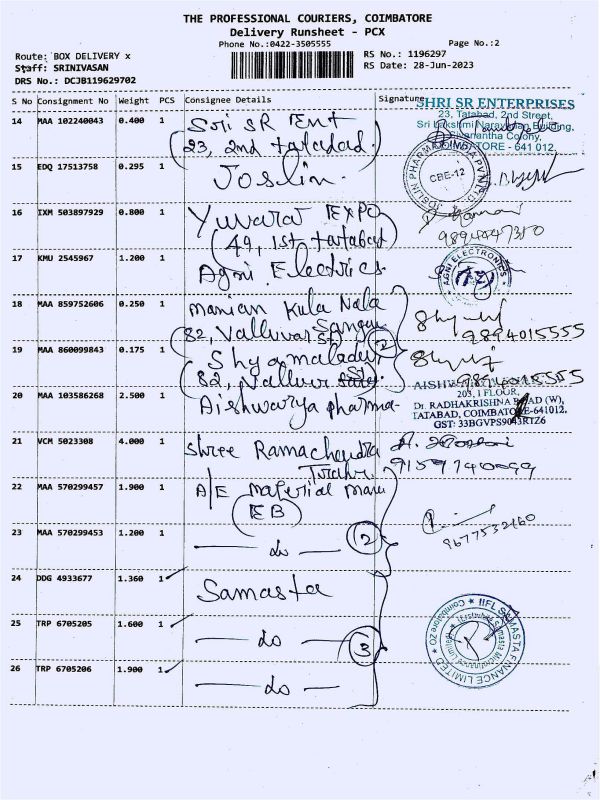 THE PROFESSIONAL COURIERS, COIMBATORE
Delivery Runsheet - PCX
Phone No.:0422-3505555
Page No.:2
Route: BOX DELIVERY x
Staff: SRINIVASAN
DRS No.: DCJB119629702
RS No.: 1196297
RS Date: 28-Jun-2023
S No Consignment No Weight PCS Consignee Details Signature
SHRI SR ENTERPRISES
23, Tatabad, 2nd Street,
Sri Lakshmi Narayanan Building,
Colony,
TORE - 641 012.
14 MAA 102240043 0.400 1 Sri SR Ent
(23, 2nd tatabad)
15 EDQ 17513758 0.295 1 Joslin.
JOSLIN PHARMA INDIA PVT LTD
CBE-12
16 IXM 503897929 0.800 1 Yuvaraj EXPO
(49, 1st tatabad)
9894447350
17 KMU 2545967 1.200 1 Agni Electrics
AGNI ELECTRONICS
18 MAA 859752606 0.250 1 Manian Kula Nala
Sangam
82, Valluvar St
9894015555
19 MAA 860099843 0.175 1 Shyamaladevi
(82, Valluvar St)
2
9894015555
20 MAA 103586268 2.500 1 Aishwarya pharma-
203, I FLOOR,
Dr. RADHAKRISHNA ROAD (W),
TATABAD, COIMBATORE-641012.
GST: 33BGVPS9043R1Z6
21 VCM 5023308 4.000 1 Shree Ramachandra
Trader
9159740099
22 MAA 570299457 1.900 1 A/E Material Manu
(EB)
9677532160
23 MAA 570299453 1.200 1 — do — 2
24 DDG 4933677 1.360 1 Samasta
25 TRP 6705205 1.600 1 — do — 3
26 TRP 6705206 1.900 1 — do —
IIFL SAMASTA FINANCE LIMITED
Coimbatore ZO